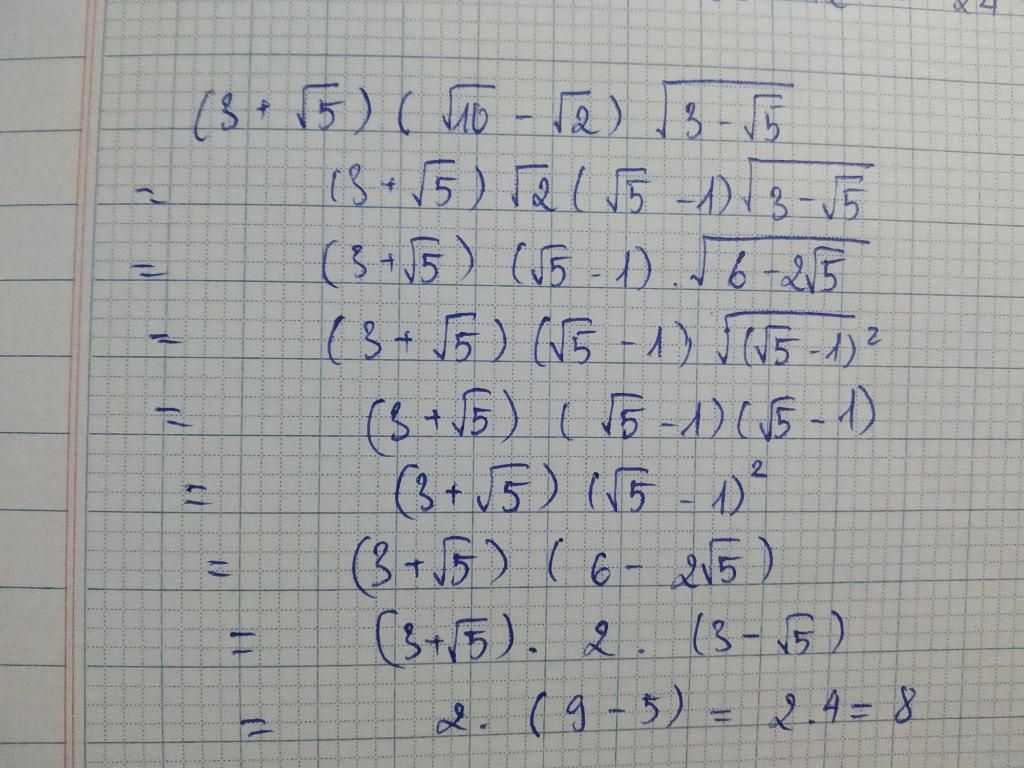 24
(3 + √5) (√10 - √2) √(3 - √5)
= (3 + √5) √2 (√5 - 1) √(3 - √5)
= (3 + √5) (√5 - 1) . √(6 - 2√5)
= (3 + √5) (√5 - 1) √(√5 - 1)²
= (3 + √5) (√5 - 1) (√5 - 1)
= (3 + √5) (√5 - 1)²
= (3 + √5) (6 - 2√5)
= (3 + √5) . 2 . (3 - √5)
= 2 . (9 - 5) = 2 . 4 = 8